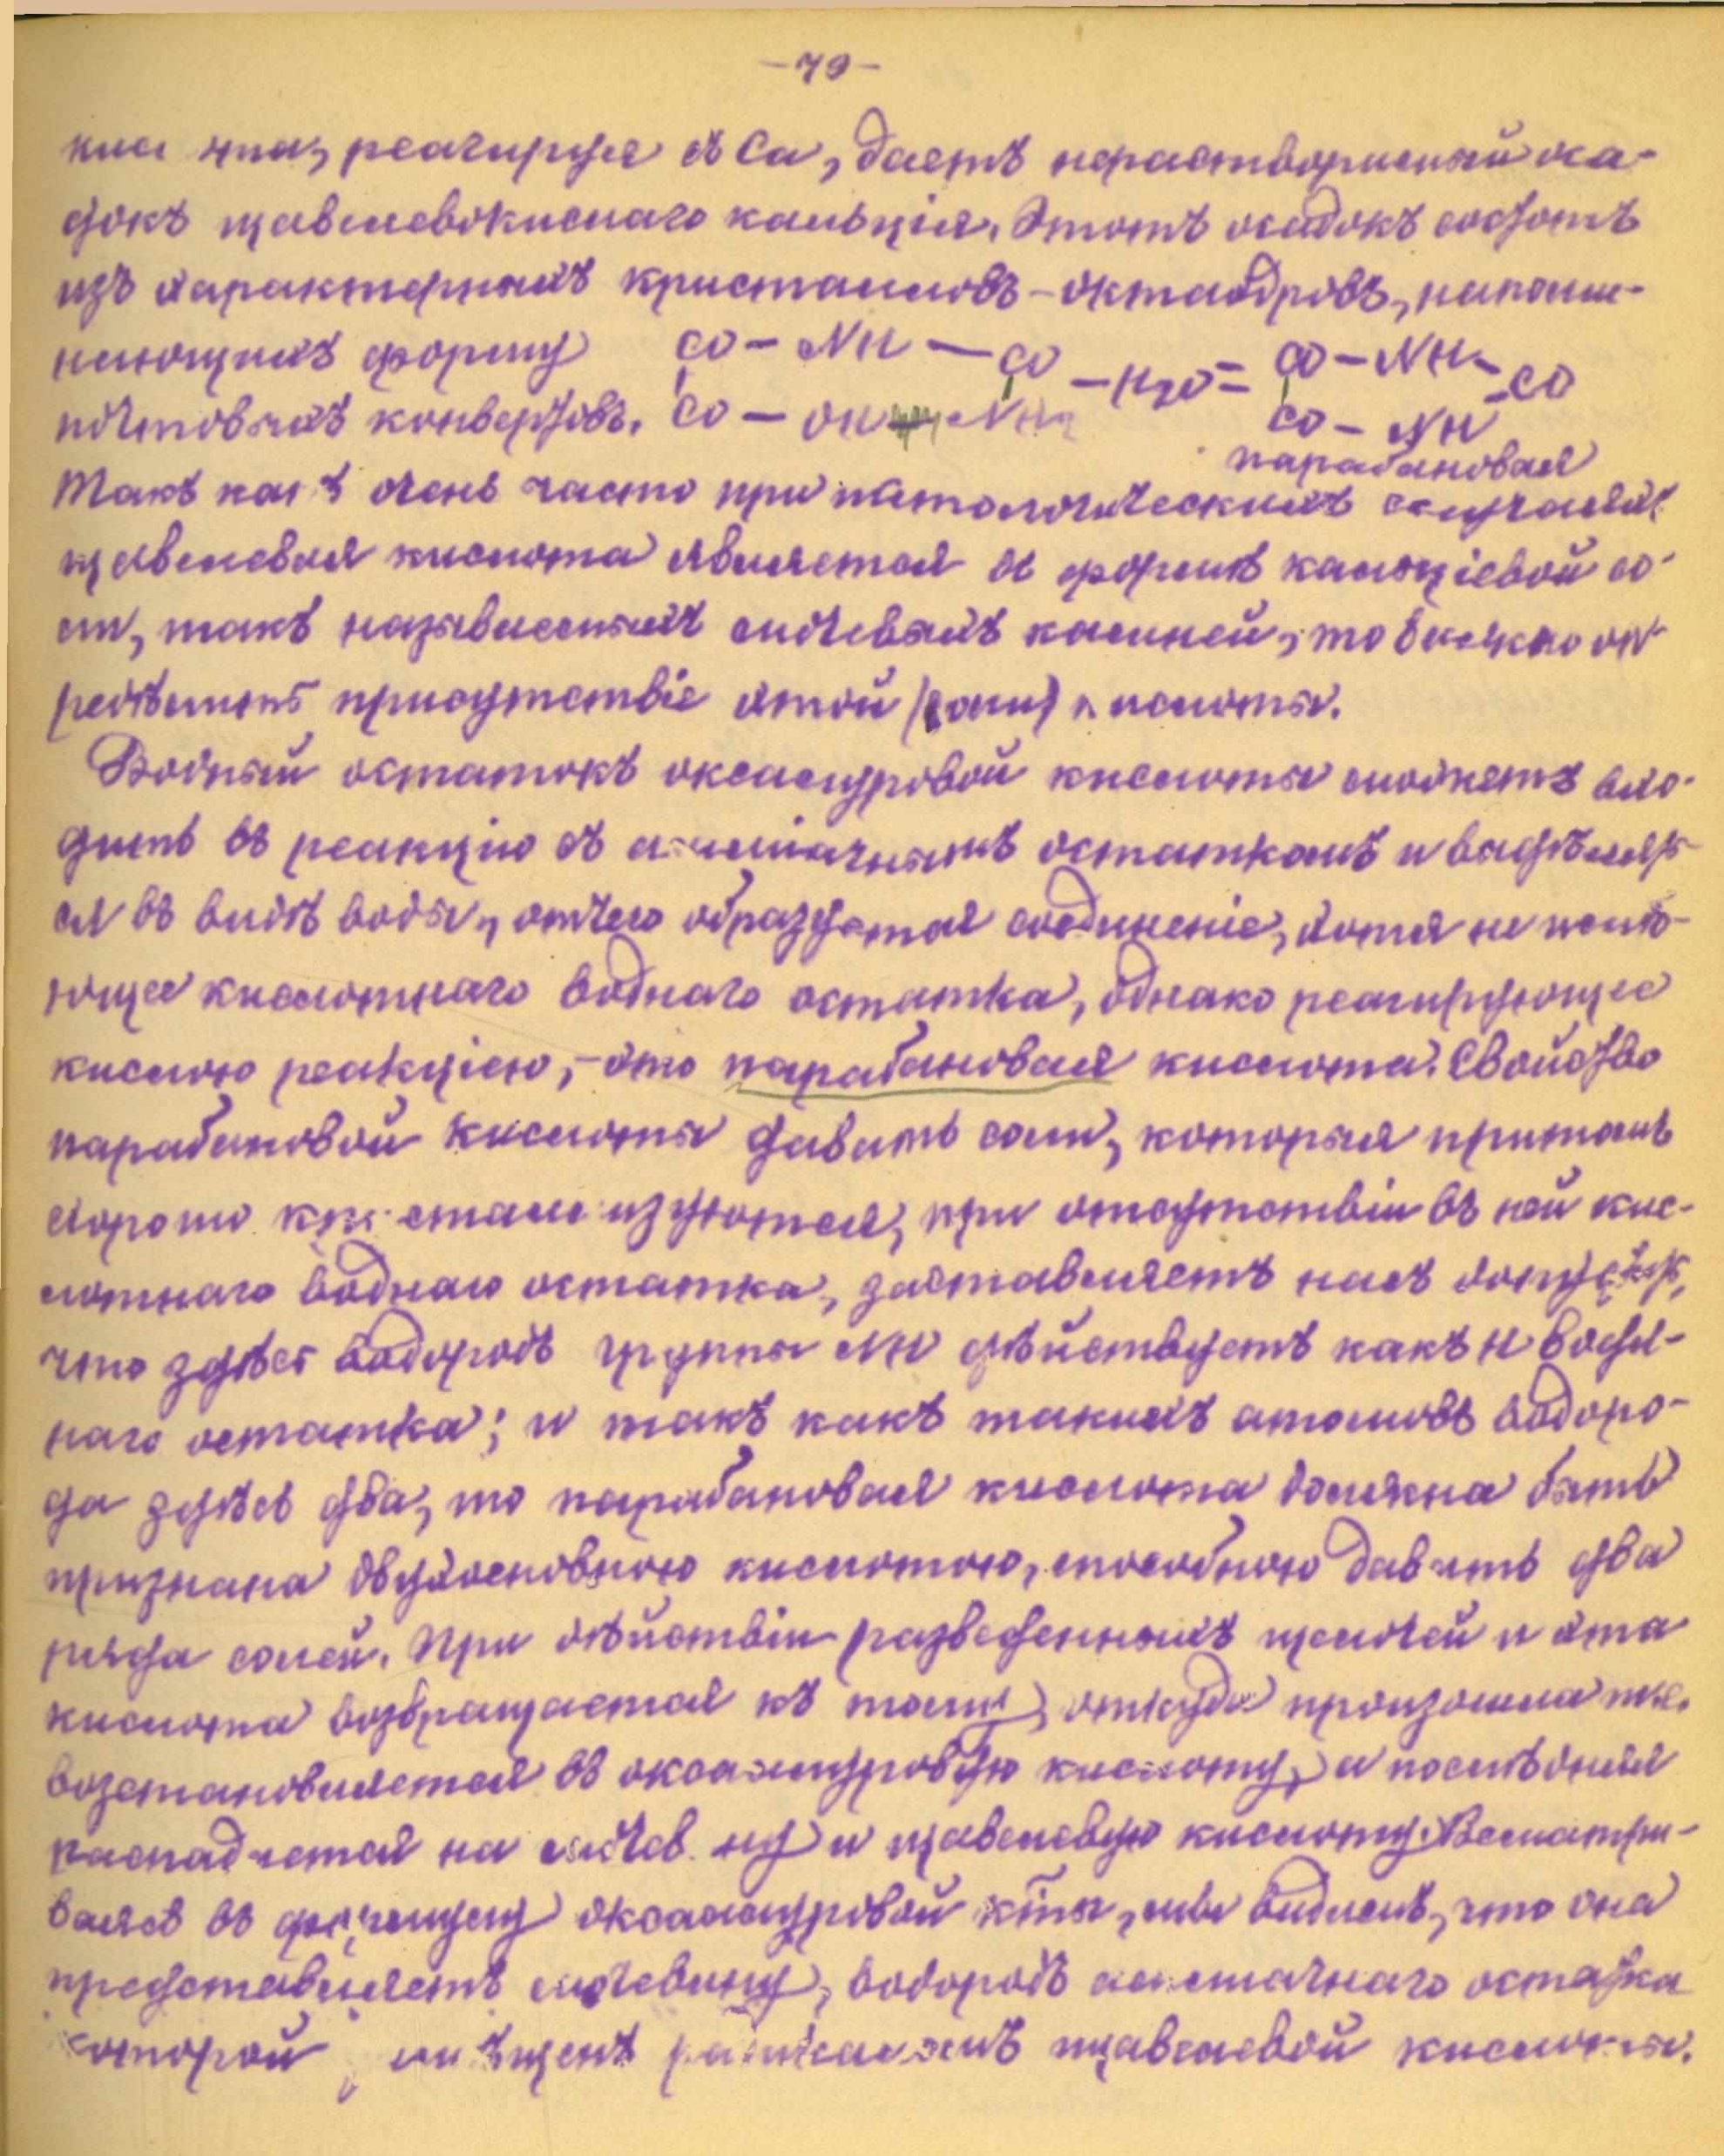 -79-
реагируя съ Са, даетъ нерастворимый оса-
докъ щавелевокислаго кальція. Этотъ осадокъ состоитъ
изъ характерныхъ кристалловъ-октаэдровъ, напоми-
нающихъ форму CO - NH - CO - H2O = CO - NH - CO
почтовыхъ конвертовъ. CO - OH NH2 CO - NH
парабановая
Такъ какъ очень часто при патологическихъ случаяхъ
щавелевая кислота является въ формѣ кальціевой со-
ли, такъ называемыхъ мочевыхъ камней, то важно оп-
редѣлить присутствіе этой (соли) кислоты.
Водный остатокъ оксалуровой кислоты можетъ вхо-
дить въ реакцію съ амміачнымъ остаткомъ и выдѣлять-
ся въ видѣ воды, отчего образуется соединеніе, хотя не имѣ-
ющее кислотнаго воднаго остатка, однако реагирующее
кислою реакціею, - это парабановая кислота. Свойство
парабановой кислоты давать соли, которыя притомъ
хорошо кристаллизуются, при отсутствіи въ ней кис-
лотнаго воднаго остатка, заставляетъ насъ допустить,
что здѣсь водородъ группы NH дѣйствуетъ какъ Н водя-
наго остатка; и такъ какъ такихъ атомовъ водоро-
да здѣсь два, то парабановая кислота должна быть
признана двухосновною кислотою, способною давать два
ряда солей. При дѣйствіи разведенныхъ щелочей и эта
кислота возвращается къ тому, откуда произошла т.е.
возстановляется въ оксалуровую кислоту, и послѣдняя
распадается на мочевину и щавелевую кислоту. Всматри-
ваясь въ формулу оксалуровой к-ты, мы видимъ, что она
представляетъ мочевину, водородъ амміачнаго остатка
которой замѣщенъ остаткомъ щавелевой кислоты.